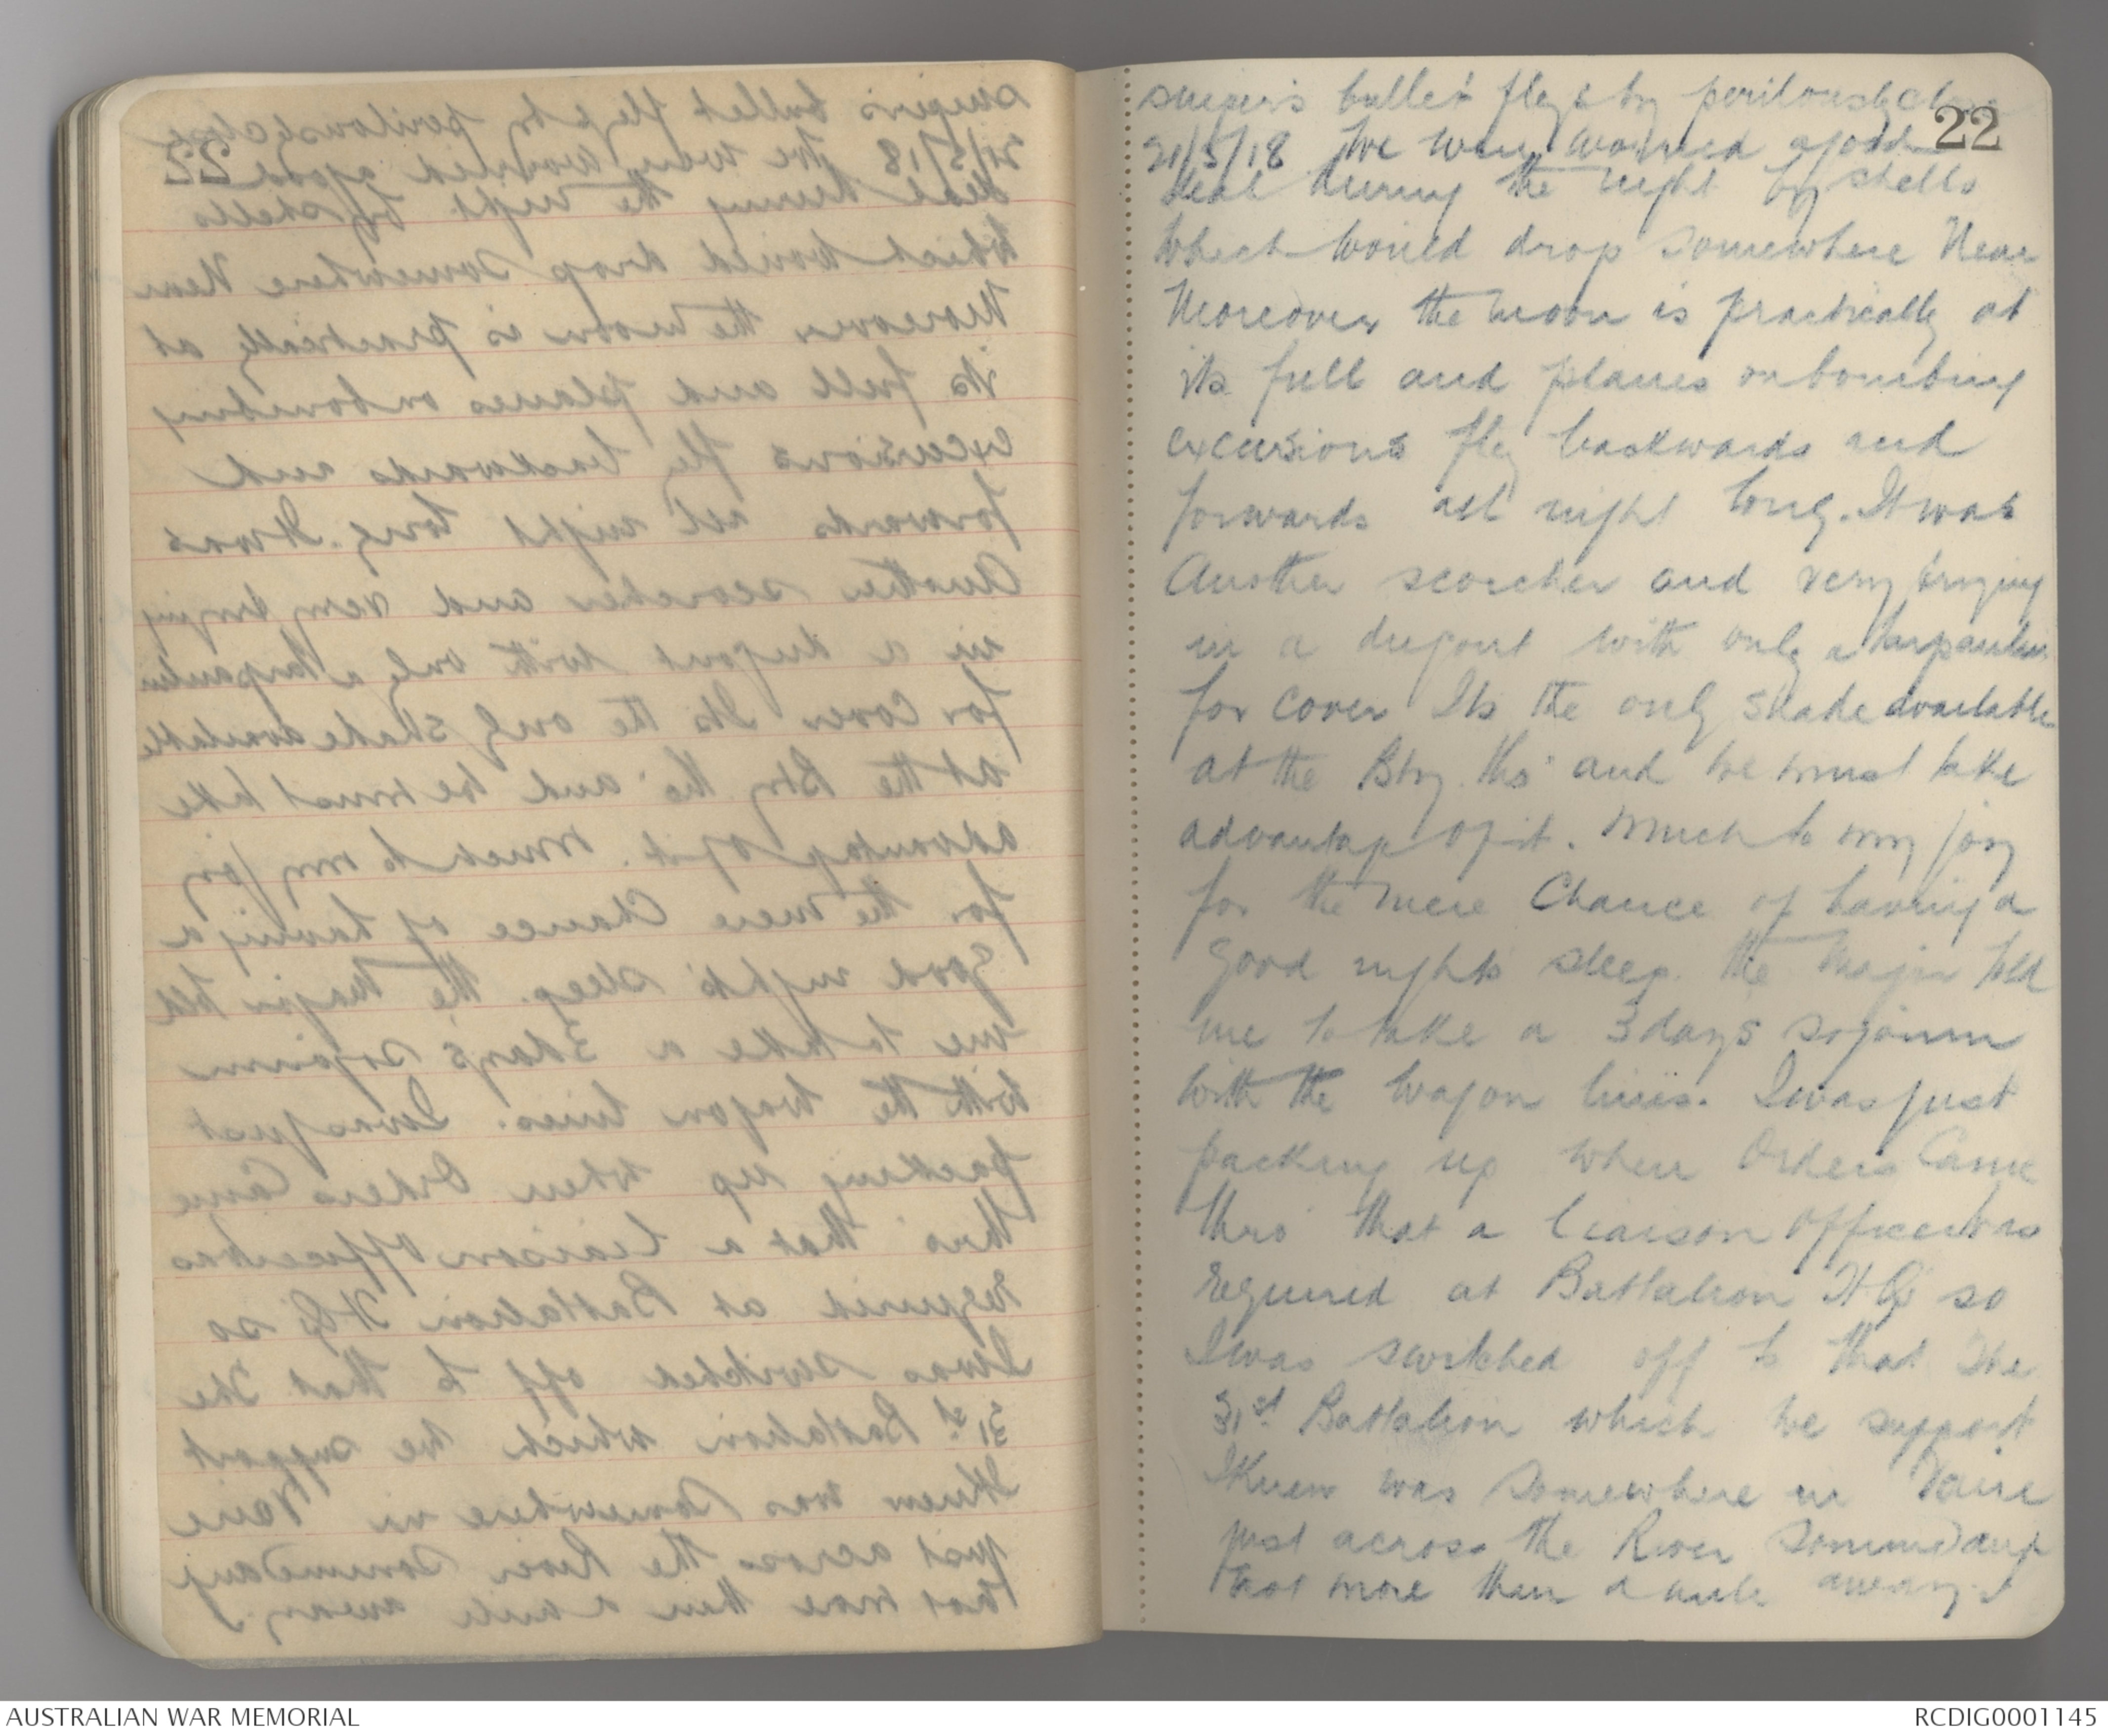 sniper's bullet flys by perilously close
22
21/5/18 We were worried a good
deal during the night by shells
which would drop somewhere near
Moreover the moon is practically at
its full and planes on bombing
excursions fly backwards and
forwards all night long. It was
Another scorcher and very trying
in a dugout with only a tarpaulin
for cover Its the only shade available
at the Bty. tho' and we must take
advantage of it. Much to my joy
for the mere Chance of having a
good nights sleep. the Major told
me to take a 3 days sojourn
with the wagon lines. I was just
packing up when Orders Came
thro' that a liaison officer was
required at Battalion HQ so
I was switched off to that The
31st Battalion which we support
I knew was somewhere in Vaire
just across the River Somme and
not more than a mile away.
AUSTRALIAN WAR MEMORIAL
RCDIG0001145